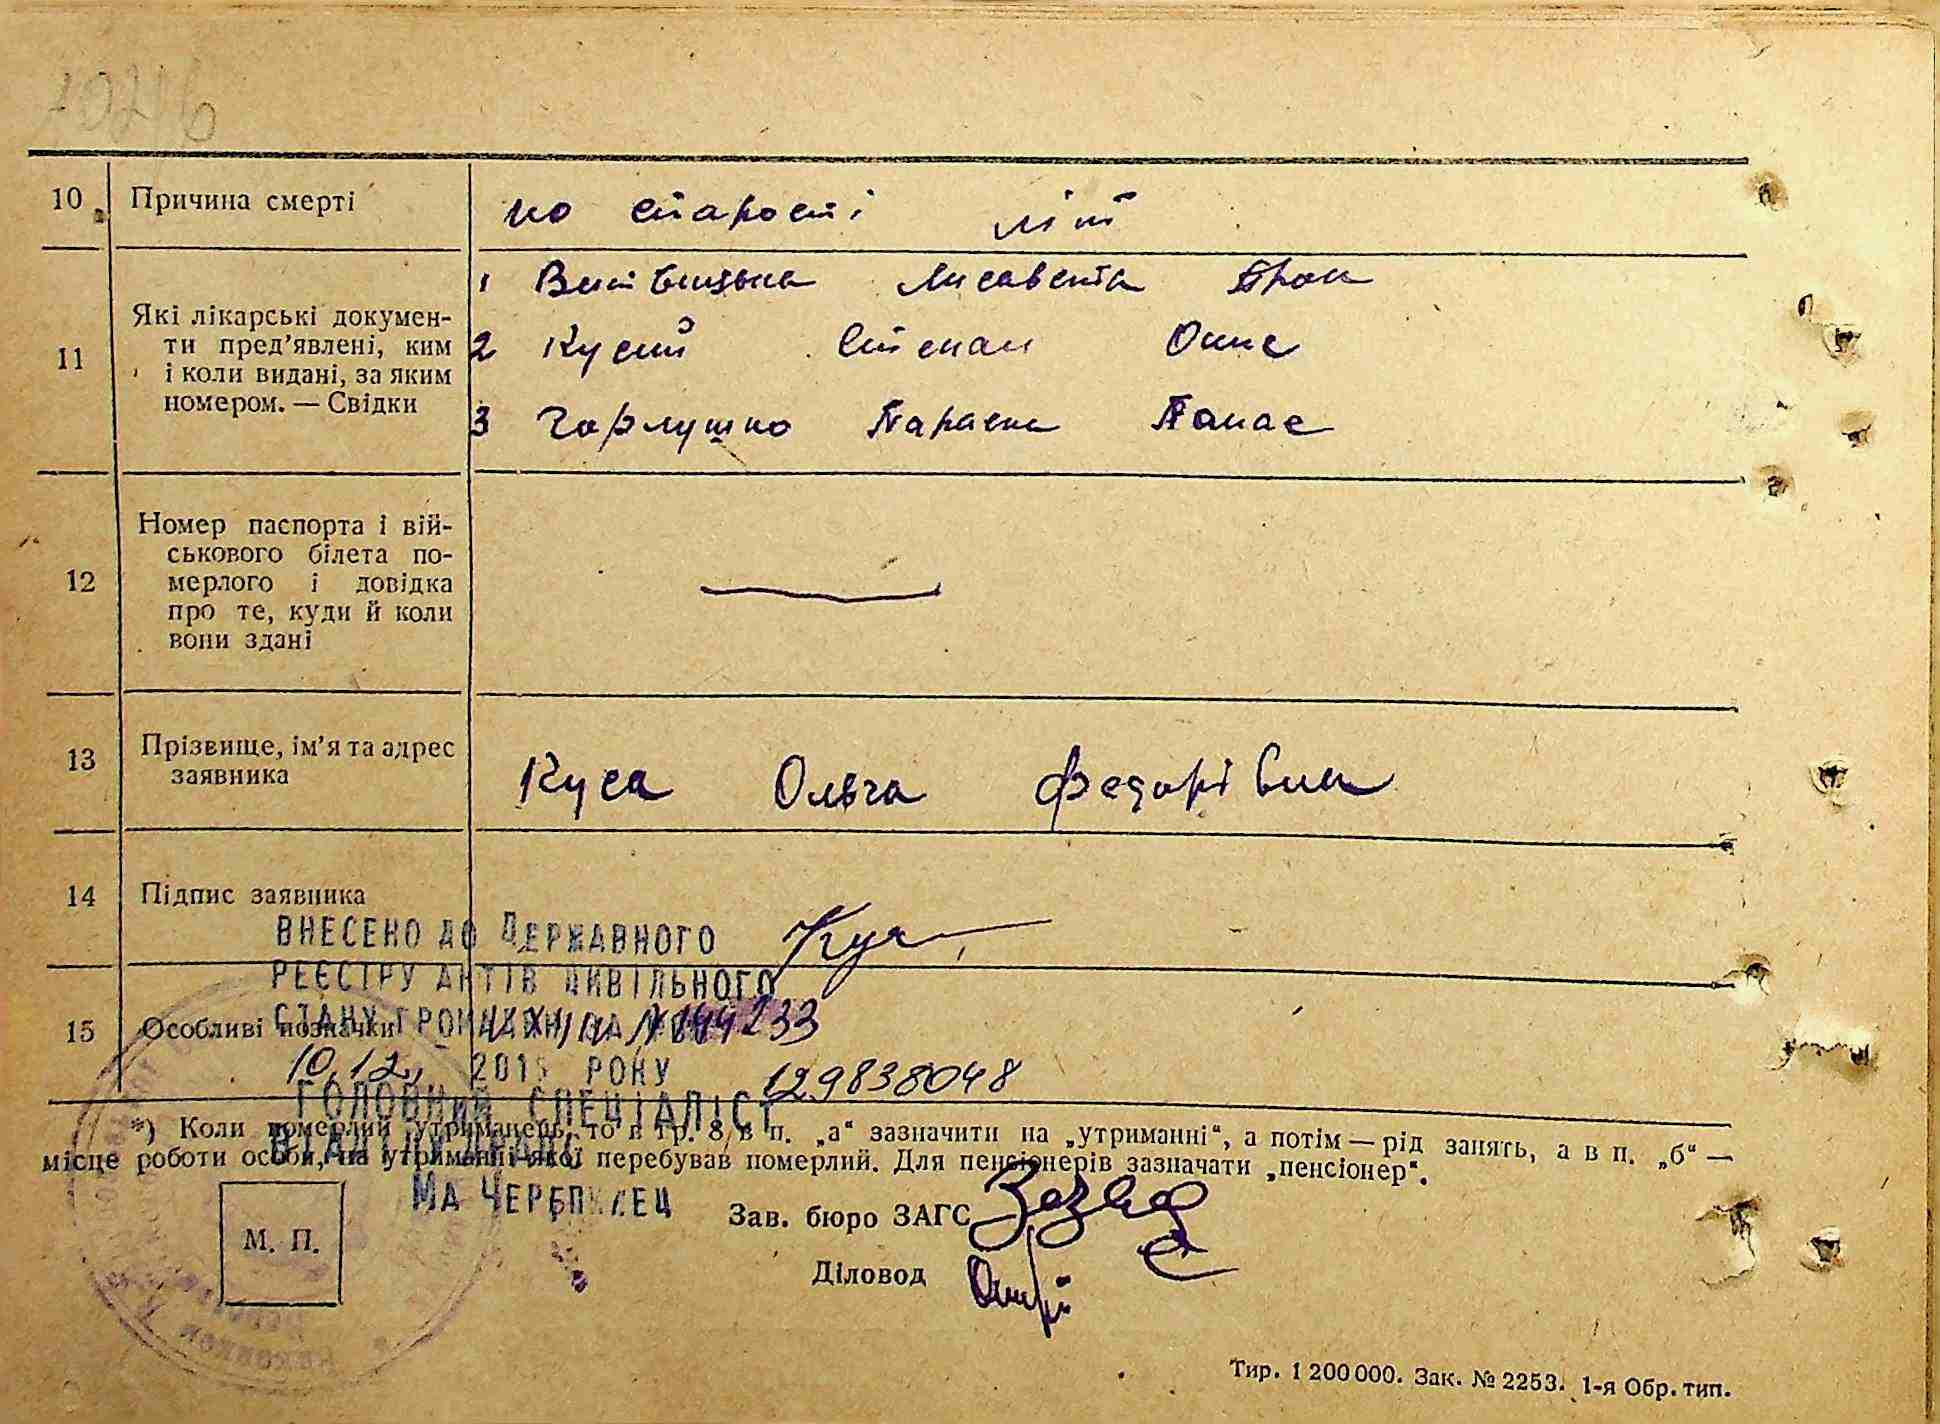 10 Причина смерті по старості літ
11 Які лікарські докумен-
ти пред'явлені, ким
і коли видані, за яким
номером. — Свідки
1 Витвицька Лисавета
2 Кусий Степан Оние
3 Чорлушко Параска Панас
12 Номер паспорта і вій-
ськового білета по-
мерлого і довідка
про те, куди й коли
вони здані
13 Прізвище, ім'я та адрес
заявника
Куса Ольга Федорівна
14 Підпис заявника
ВНЕСЕНО ДО ДЕРЖАВНОГО
РЕЄСТРУ АКТІВ ЦИВІЛЬНОГО
15 Особливі позначки
СТАНУ ГРОМАДЯН ЗА
10.12. 2015 РОКУ 129838048
ГОЛОВНИЙ СПЕЦІАЛІСТ
*) Коли померлий утриманець, то в гр. 8, в п. „а“ зазначити на „утриманні“, а потім — рід занять, а в п. „б“ —
місце роботи особи, на утриманні якої перебував померлий. Для пенсіонерів зазначати „пенсіонер“.
М. П.
Зав. бюро ЗАГС
Діловод
Тир. 1 200 000. Зак. № 2253. 1-я Обр. тип.